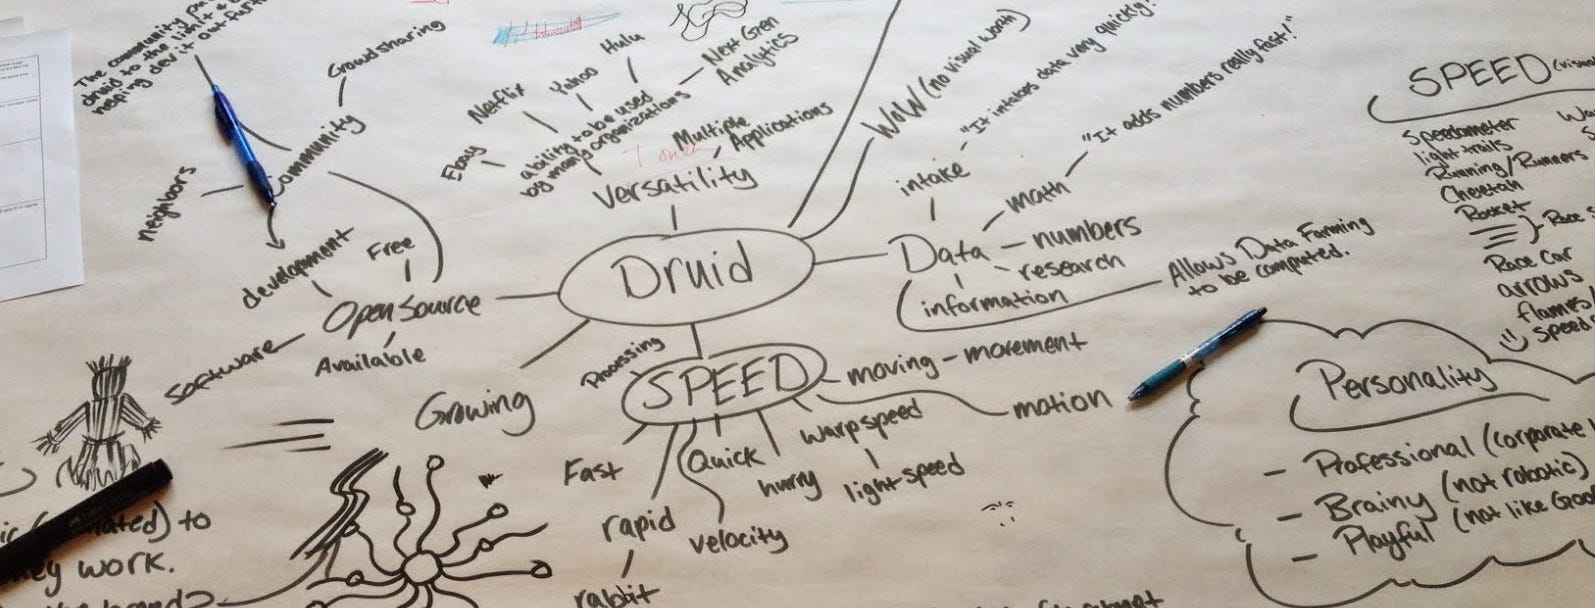 The community
druid to the light &
helping dev. it out
Crowdsharing
Community
neighbors
development
Free
Open Source
Software
Available
Netflix
Yahoo
Hulu
Ebay
ability to be used
by many organizations
Next Gen
Analytics
Multiple
Applications
Versatility
WoW (no visual worth)
"It intakes data very quickly!
"It adds numbers really fast!"
intake
math
Data
numbers
research
information
Allows Data Farming
to be computed.
Druid
Growing
Processing
SPEED
moving - movement
motion
warpspeed
lightspeed
hurry
Quick
velocity
Fast
rapid
rabbit
SPEED
Speedometer
light trails
Running/Runners
Cheetah
Rocket
Race Car
arrows
flames
Speed
Personality
- Professional (corporate
- Brainy (not robotic)
- Playful (not like Goo
to
work.